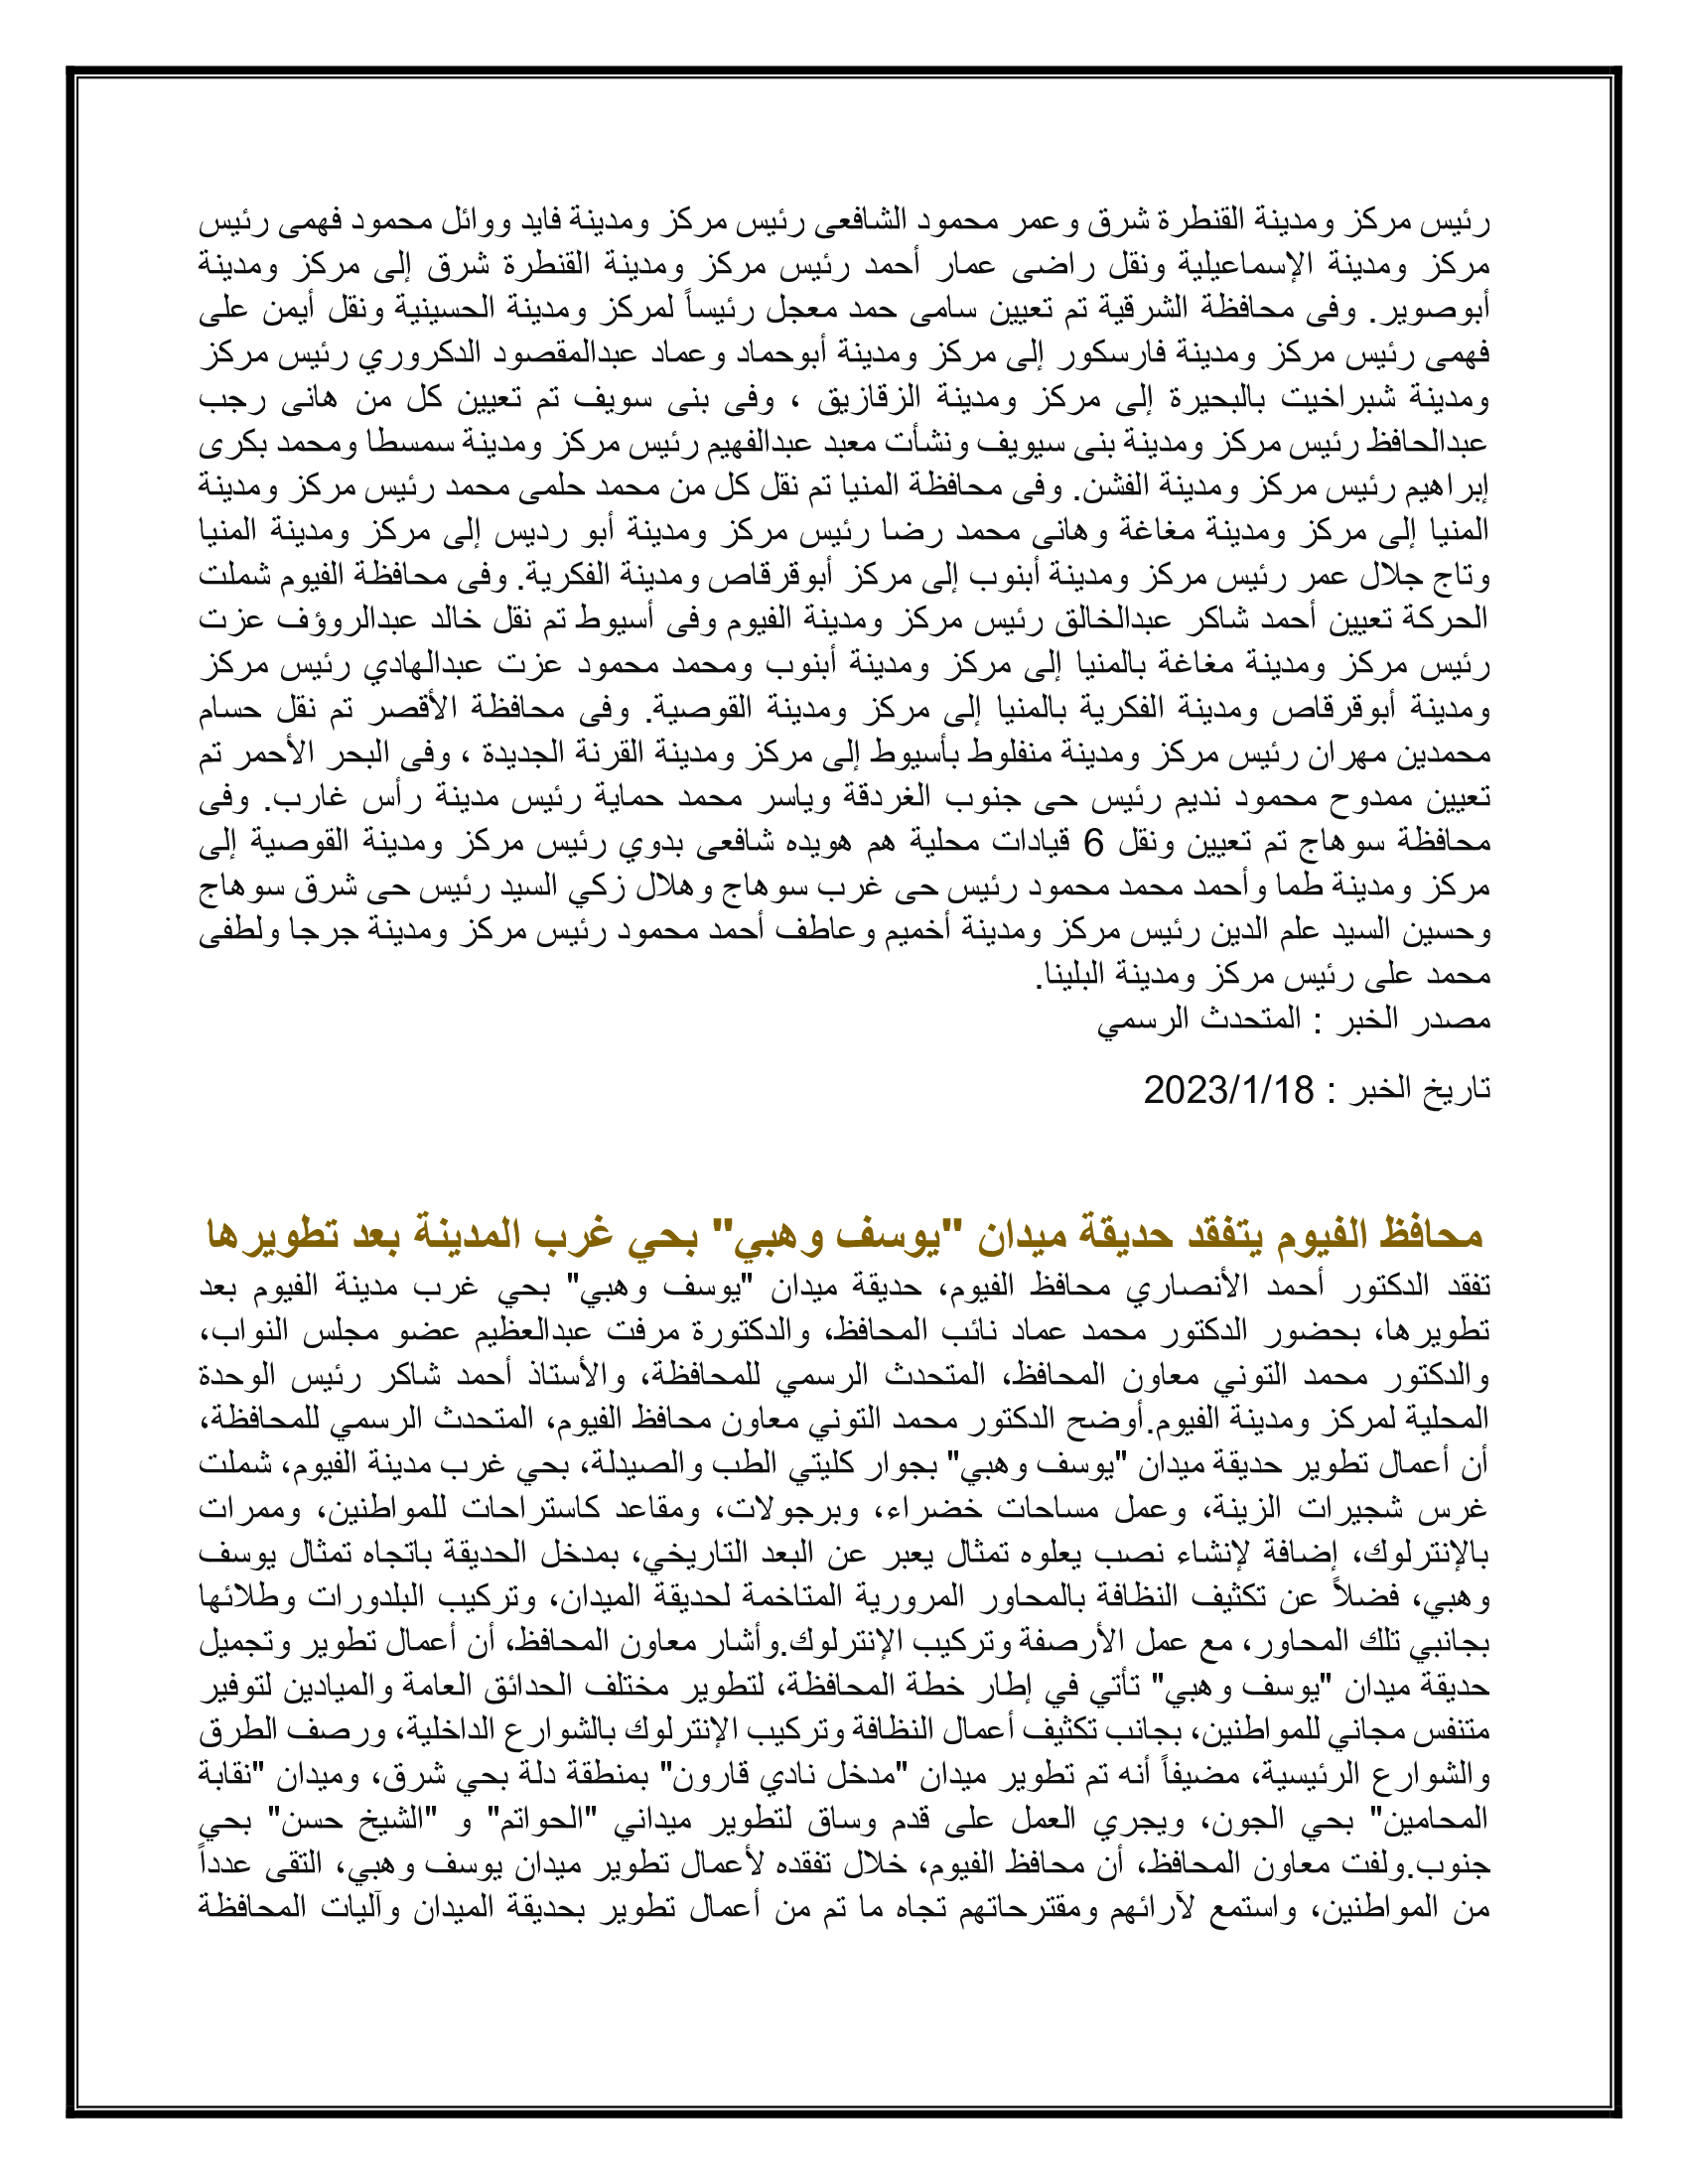 رئيس مركز ومدينة القنطرة شرق وعمر محمود الشافعى رئيس مركز ومدينة فايد ووائل محمود فهمى رئيس
مركز ومدينة الإسماعيلية ونقل راضى عمار أحمد رئيس مركز ومدينة القنطرة شرق إلى مركز ومدينة
أبوصوير. وفى محافظة الشرقية تم تعيين سامى حمد معجل رئيساً لمركز ومدينة الحسينية ونقل أيمن على
فهمى رئيس مركز ومدينة فارسكور إلى مركز ومدينة أبوحماد وعماد عبدالمقصود الدكروري رئيس مركز
ومدينة شبراخيت بالبحيرة إلى مركز ومدينة الزقازيق ، وفى بنى سويف تم تعيين كل من هانى رجب
عبدالحافظ رئيس مركز ومدينة بنى سيويف ونشأت معبد عبدالفهيم رئيس مركز ومدينة سمسطا ومحمد بكرى
إبراهيم رئيس مركز ومدينة الفشن. وفى محافظة المنيا تم نقل كل من محمد حلمى محمد رئيس مركز ومدينة
المنيا إلى مركز ومدينة مغاغة وهانى محمد رضا رئيس مركز ومدينة أبو رديس إلى مركز ومدينة المنيا
وتاج جلال عمر رئيس مركز ومدينة أبنوب إلى مركز أبوقرقاص ومدينة الفكرية. وفى محافظة الفيوم شملت
الحركة تعيين أحمد شاكر عبدالخالق رئيس مركز ومدينة الفيوم وفى أسيوط تم نقل خالد عبدالروؤف عزت
رئيس مركز ومدينة مغاغة بالمنيا إلى مركز ومدينة أبنوب ومحمد محمود عزت عبدالهادي رئيس مركز
ومدينة أبوقرقاص ومدينة الفكرية بالمنيا إلى مركز ومدينة القوصية. وفى محافظة الأقصر تم نقل حسام
محمدين مهران رئيس مركز ومدينة منفلوط بأسيوط إلى مركز ومدينة القرنة الجديدة ، وفى البحر الأحمر تم
تعيين ممدوح محمود نديم رئيس حى جنوب الغردقة وياسر محمد حماية رئيس مدينة رأس غارب. وفى
محافظة سوهاج تم تعيين ونقل 6 قيادات محلية هم هويده شافعى بدوي رئيس مركز ومدينة القوصية إلى
مركز ومدينة طما وأحمد محمد محمود رئيس حى غرب سوهاج وهلال زكي السيد رئيس حى شرق سوهاج
وحسين السيد علم الدين رئيس مركز ومدينة أخميم وعاطف أحمد محمود رئيس مركز ومدينة جرجا ولطفى
محمد على رئيس مركز ومدينة البلينا.
مصدر الخبر : المتحدث الرسمي
تاريخ الخبر : 2023/1/18
محافظ الفيوم يتفقد حديقة ميدان "يوسف وهبي" بحي غرب المدينة بعد تطويرها
تفقد الدكتور أحمد الأنصاري محافظ الفيوم، حديقة ميدان "يوسف وهبي" بحي غرب مدينة الفيوم بعد
تطويرها، بحضور الدكتور محمد عماد نائب المحافظ، والدكتورة مرفت عبدالعظيم عضو مجلس النواب،
والدكتور محمد التوني معاون المحافظ، المتحدث الرسمي للمحافظة، والأستاذ أحمد شاكر رئيس الوحدة
المحلية لمركز ومدينة الفيوم.أوضح الدكتور محمد التوني معاون محافظ الفيوم، المتحدث الرسمي للمحافظة،
أن أعمال تطوير حديقة ميدان "يوسف وهبي" بجوار كليتي الطب والصيدلة، بحي غرب مدينة الفيوم، شملت
غرس شجيرات الزينة، وعمل مساحات خضراء، وبرجولات، ومقاعد كاستراحات للمواطنين، وممرات
بالإنترلوك، إضافة لإنشاء نصب يعلوه تمثال يعبر عن البعد التاريخي، بمدخل الحديقة باتجاه تمثال يوسف
وهبي، فضلاً عن تكثيف النظافة بالمحاور المرورية المتاخمة لحديقة الميدان، وتركيب البلدورات وطلائها
بجانبي تلك المحاور، مع عمل الأرصفة وتركيب الإنترلوك.وأشار معاون المحافظ، أن أعمال تطوير وتجميل
حديقة ميدان "يوسف وهبي" تأتي في إطار خطة المحافظة، لتطوير مختلف الحدائق العامة والميادين لتوفير
متنفس مجاني للمواطنين، بجانب تكثيف أعمال النظافة وتركيب الإنترلوك بالشوارع الداخلية، ورصف الطرق
والشوارع الرئيسية، مضيفاً أنه تم تطوير ميدان "مدخل نادي قارون" بمنطقة دلة بحي شرق، وميدان "نقابة
المحامين" بحي الجون، ويجري العمل على قدم وساق لتطوير ميداني "الحواتم" و "الشيخ حسن" بحي
جنوب.ولفت معاون المحافظ، أن محافظ الفيوم، خلال تفقده لأعمال تطوير ميدان يوسف وهبي، التقى عدداً
من المواطنين، واستمع لآرائهم ومقترحاتهم تجاه ما تم من أعمال تطوير بحديقة الميدان وآليات المحافظة